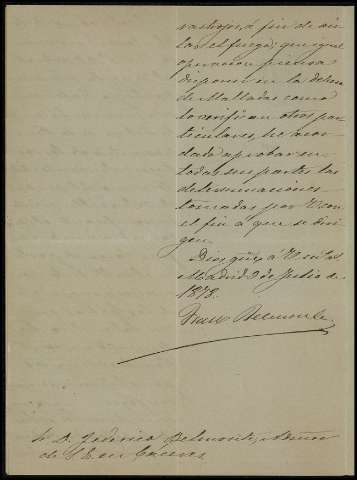 rastrojos á fin de ais-
lar el fuego; que igual
operacion piensa
disponer en la dehesa
de Malladas como
lo verifican otros par-
ticulares, ha acor-
dado aprobar en
todas sus partes las
determinaciones
tomadas por V. con
el fin á que se diri-
gen.
Dios gūe á V. m.s a.s
Madrid 9 de Julio de
1878.
Fran.co Belmonte
Sr. D. Federico Belmonte, Admor
de S. E. en Cáceres